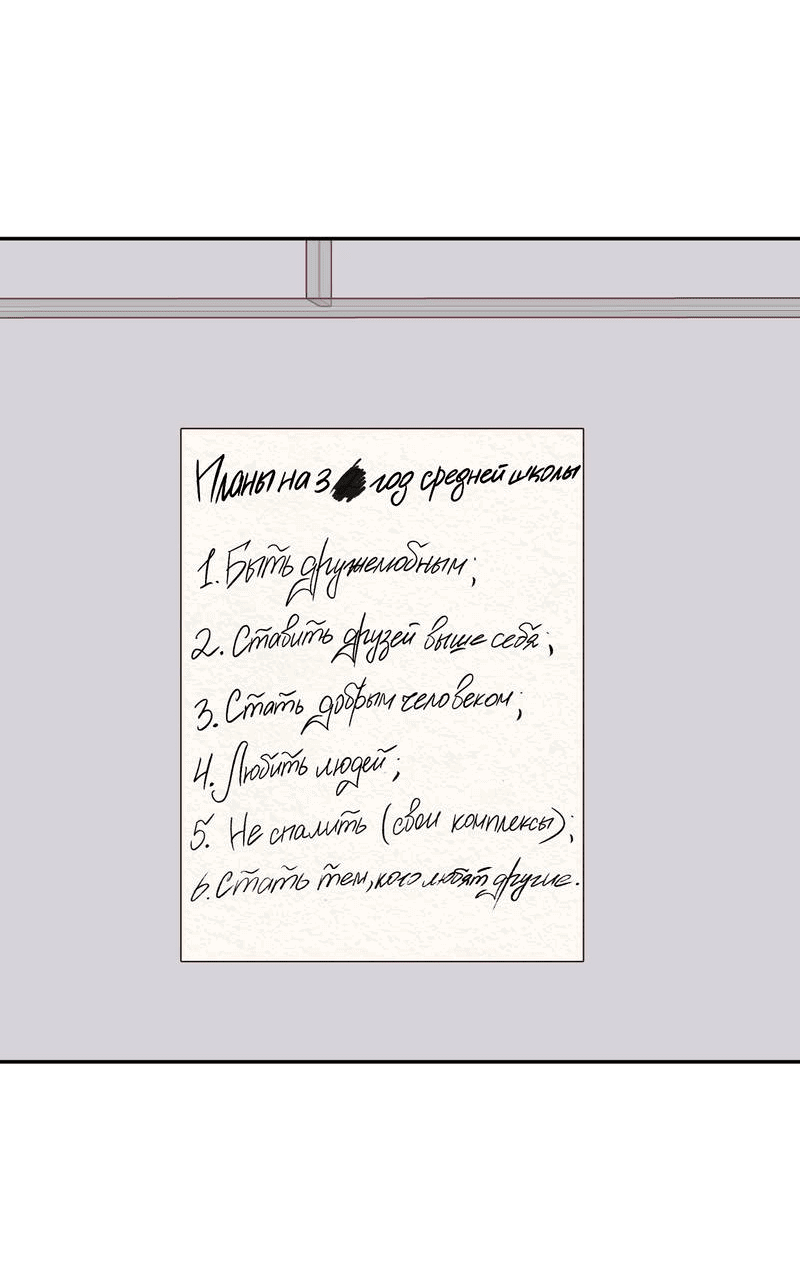 Планы на 3 год средней школы
1. Быть дружелюбным;
2. Ставить друзей выше себя;
3. Стать добрым человеком;
4. Любить людей;
5. Не спалить (свои комплексы);
6. Стать тем, кого любят другие.